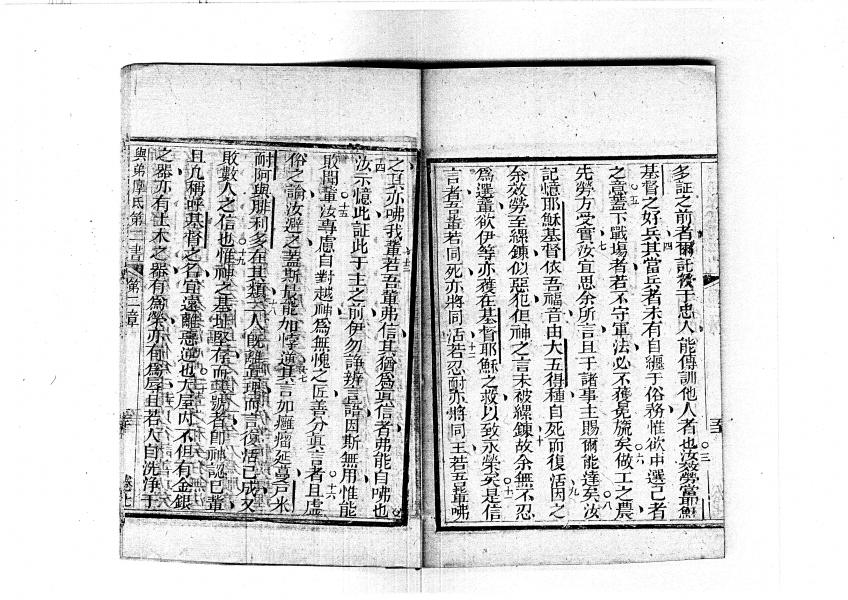 多証之前者爾託於于忠人能傳訓他人者也汝效勞當服
基督之好兵其當兵者未有自纏于俗務惟欲中選己者
之意蓋下戰場者若不守軍法必不獲冕旒矣做工之農
先勞方受實汝宜思余所言且于諸事主賜爾能達矣汝
記憶耶穌基督依吾福音由大五得種自死而復活因之
余效勞至縲鍊似惡犯但神之言未被縲鍊故余無不忍
爲選輩欲伊等亦獲在基督耶穌之救以致永榮矣是信
言者吾輩若同死亦將同活若忍耐亦將同王若吾輩咈
之其亦咈我輩若吾輩弗信其猶爲眞信者弗能自咈也
汝示憶此証此于主之前伊勿諍辨言語因斯無用惟能
敗聞輩汝專慮自對越神爲無愧之匠善分眞言者且虛
俗之論汝避之蓋斯最能加悖逆其言如癰瘤延蔓戶米
耐阿與腓利多在其類二人旣離眞理而言復活已成又
敗數人之信也惟神之基址堅存而
號者卽神認己輩
且凡稱呼基督之名宜遠離惡逆也大屋內不但有金銀
之器亦有土木之器有爲榮亦有爲辱且若人自洗淨于
與弟摩氏第二書 第二章